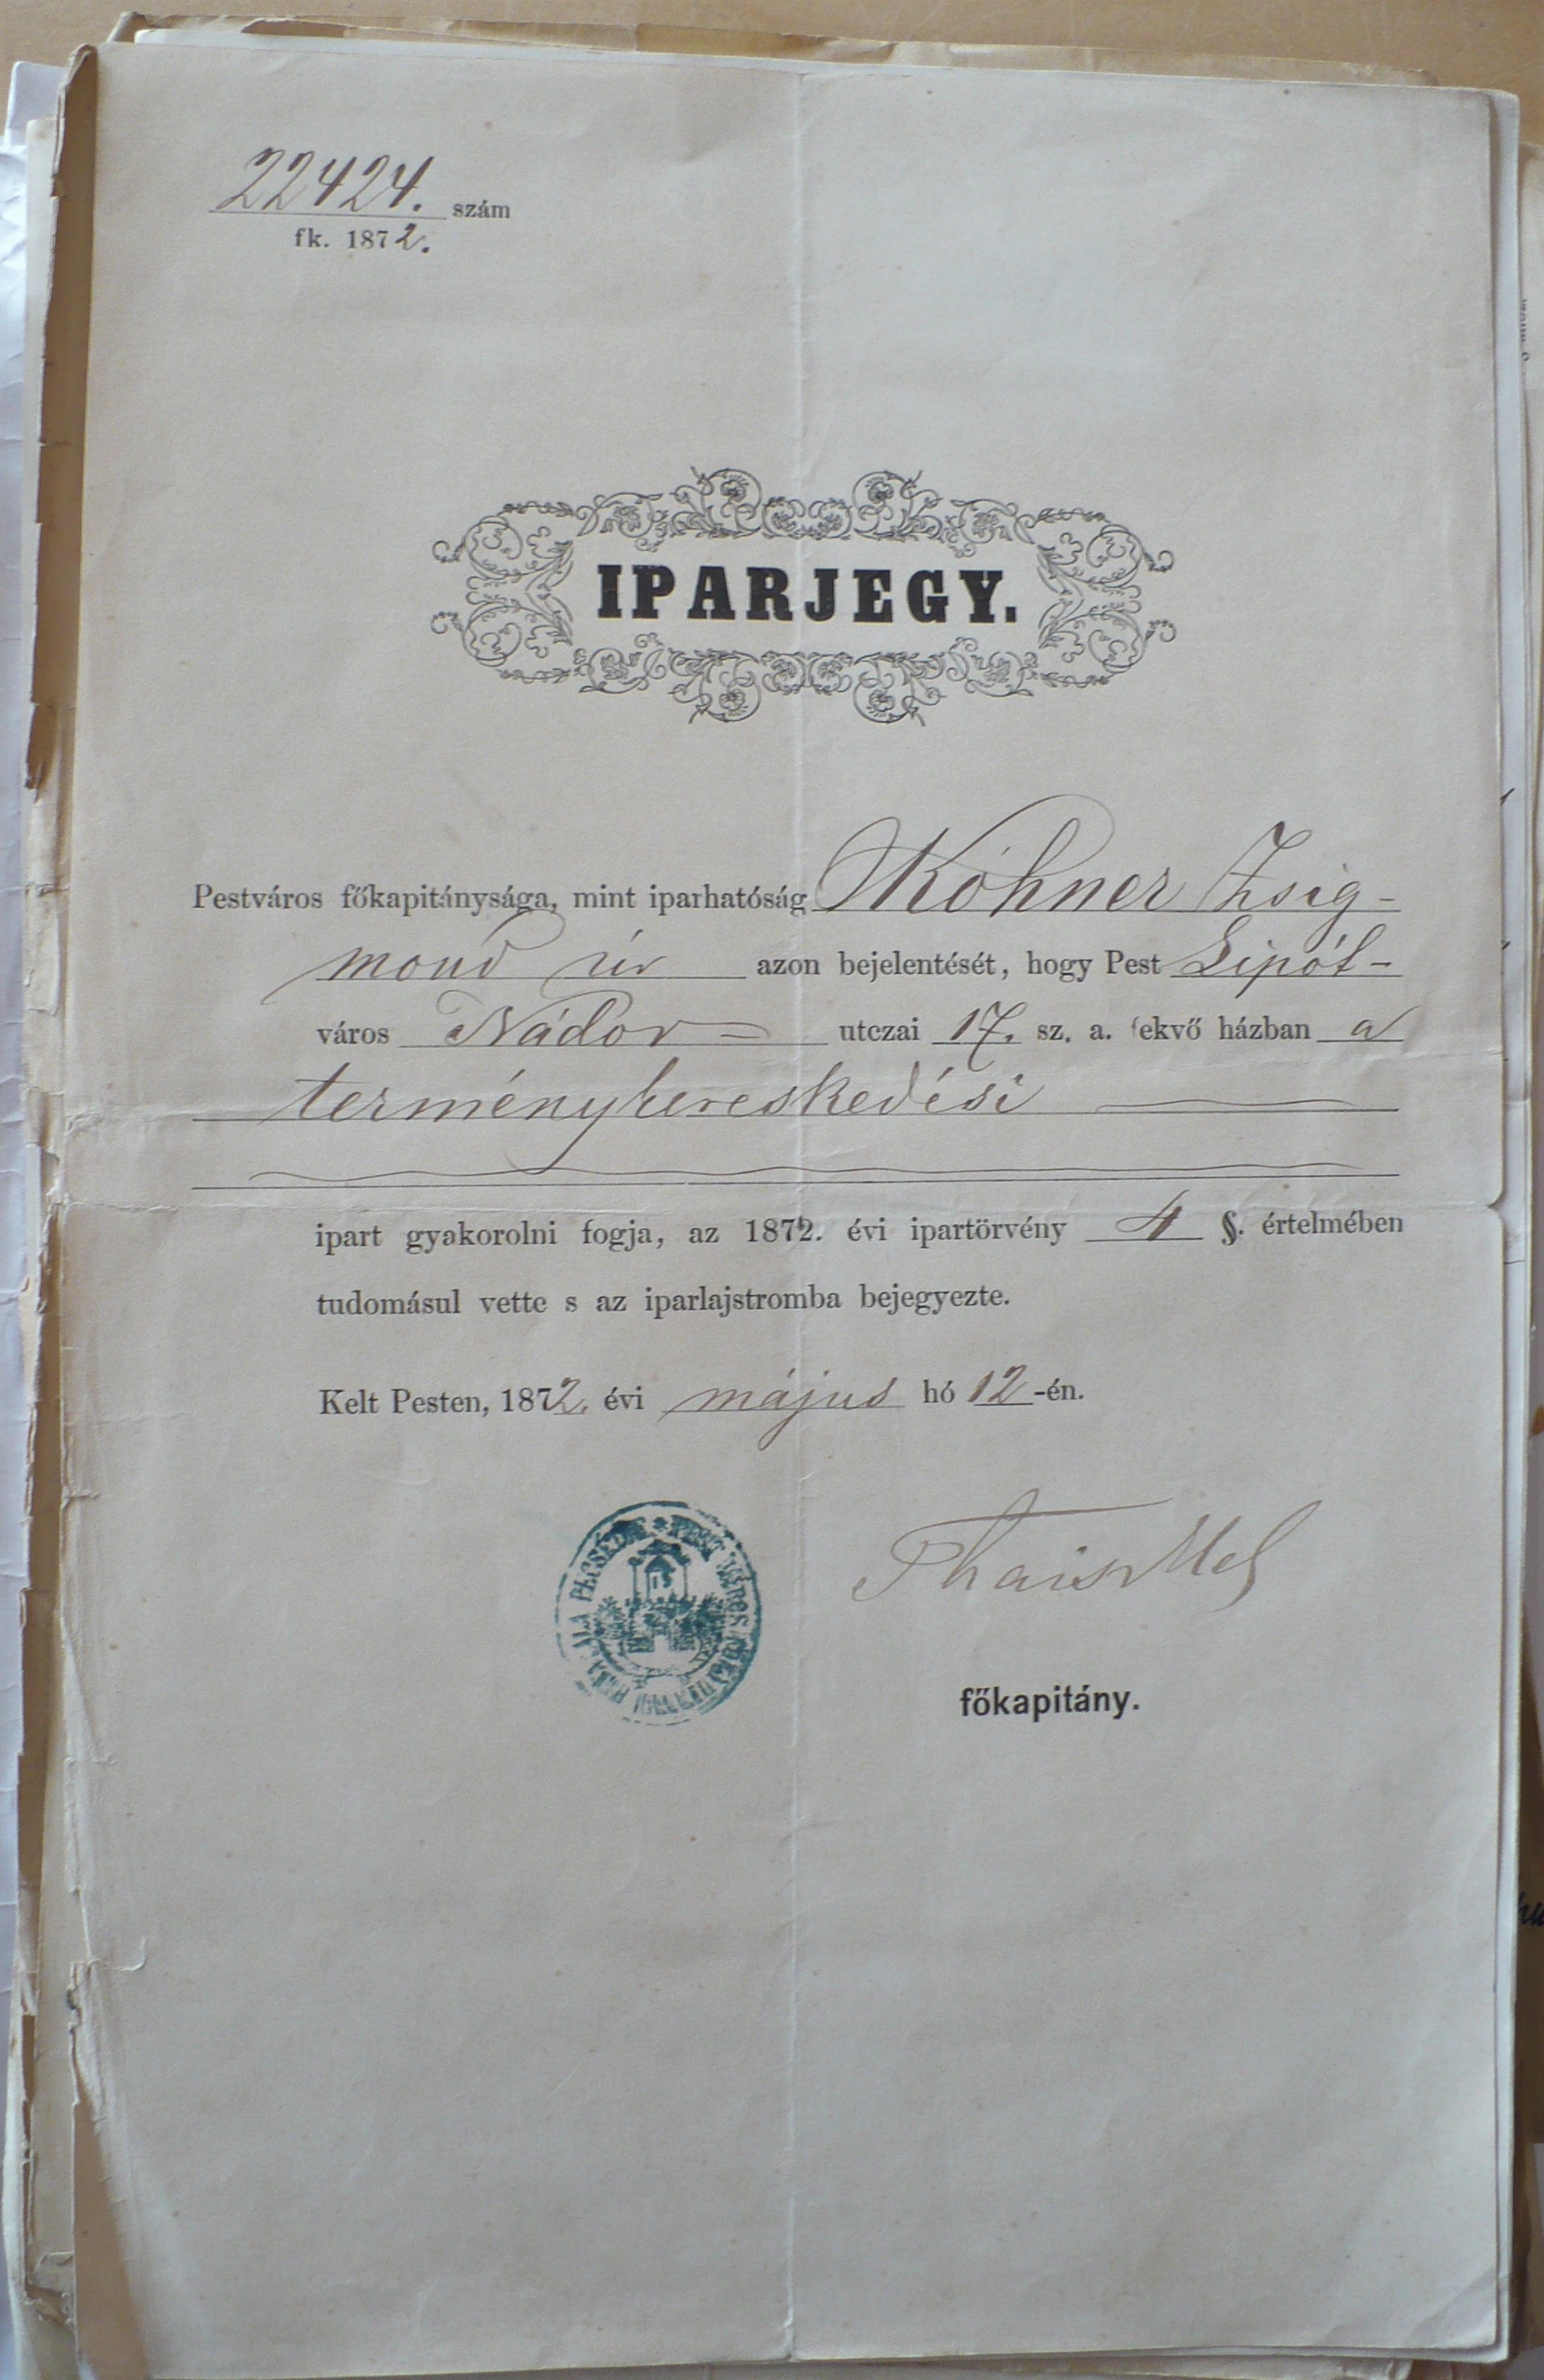 22424. szám
fk. 1872.
IPARJEGY.
Pestváros főkapitánysága, mint iparhatóság Kohner Zsig-
mond úr azon bejelentését, hogy Pest Lipót-
város Nádor= utczai 17. sz. a. fekvő házban a
terménykereskedési
ipart gyakorolni fogja, az 1872. évi ipartörvény 4 §. értelmében
tudomásul vette s az iparlajstromba bejegyezte.
Kelt Pesten, 1872. évi május hó 12-én.
PEST VÁROS PECSÉTJE
Thaisz
főkapitány.